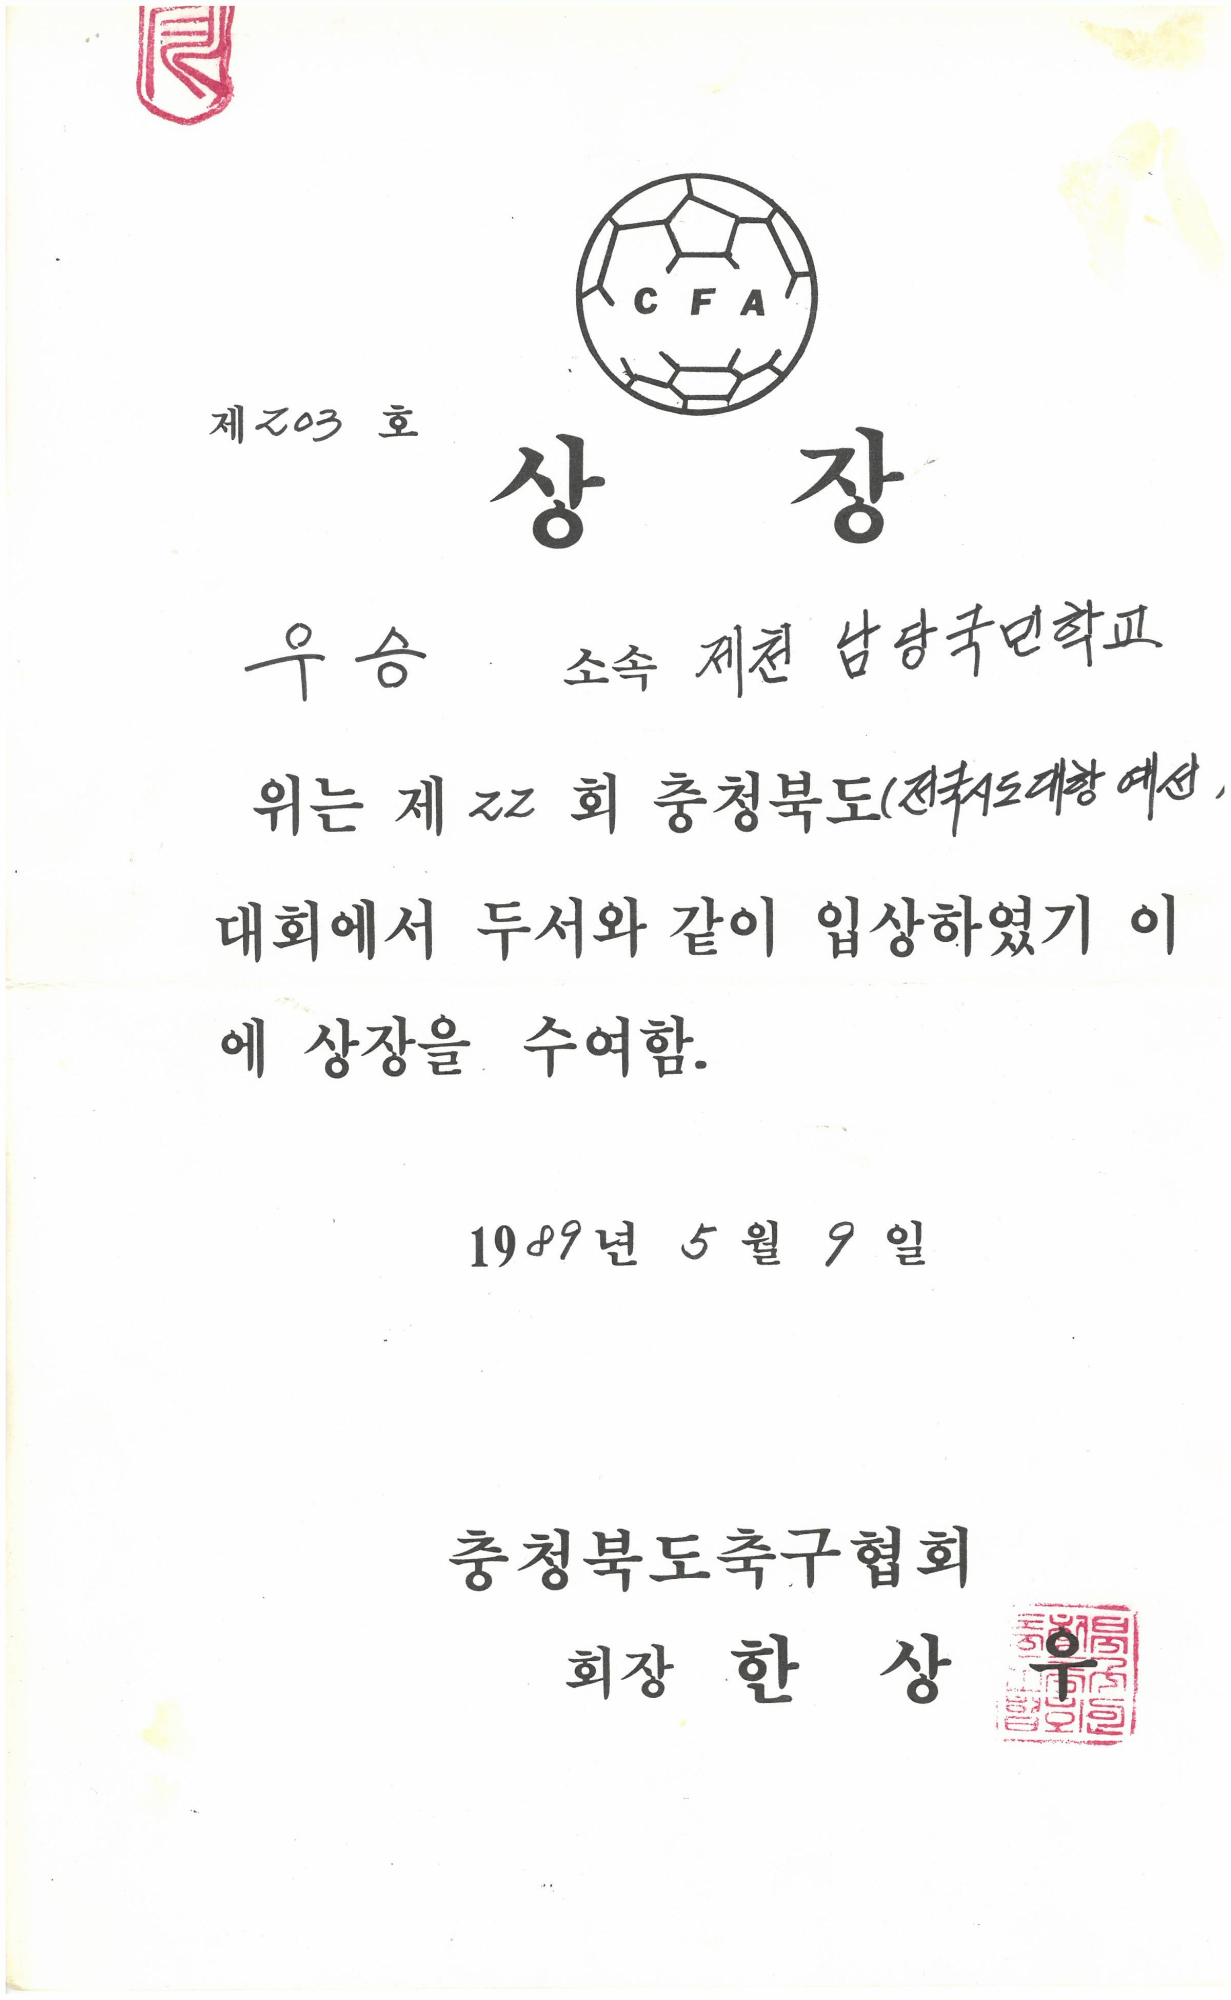 C F A
제203 호
상 장
우승 소속 제천 남당국민학교
위는 제 22 회 충청북도(전국시도대항 예선,
대회에서 두서와 같이 입상하였기 이
에 상장을 수여함.
1989년 5월 9일
충청북도축구협회
회장 한 상 우